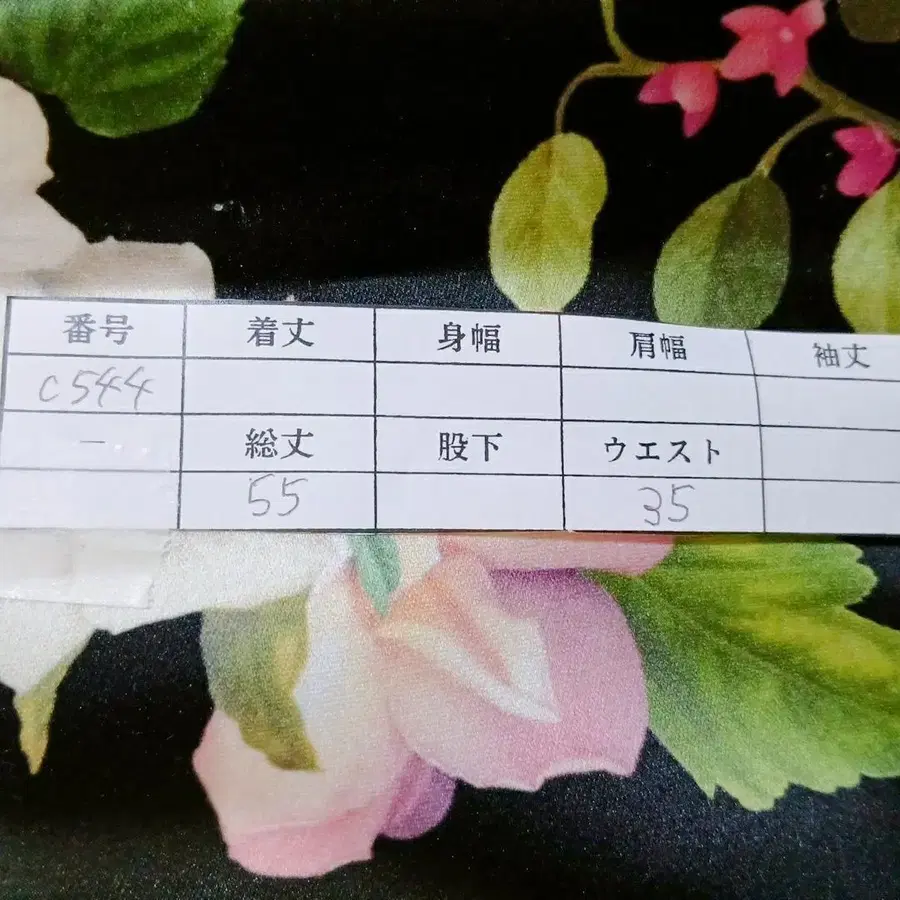 番号 着丈 身幅 肩幅 袖丈
C544
― 総丈 股下 ウエスト
55 35